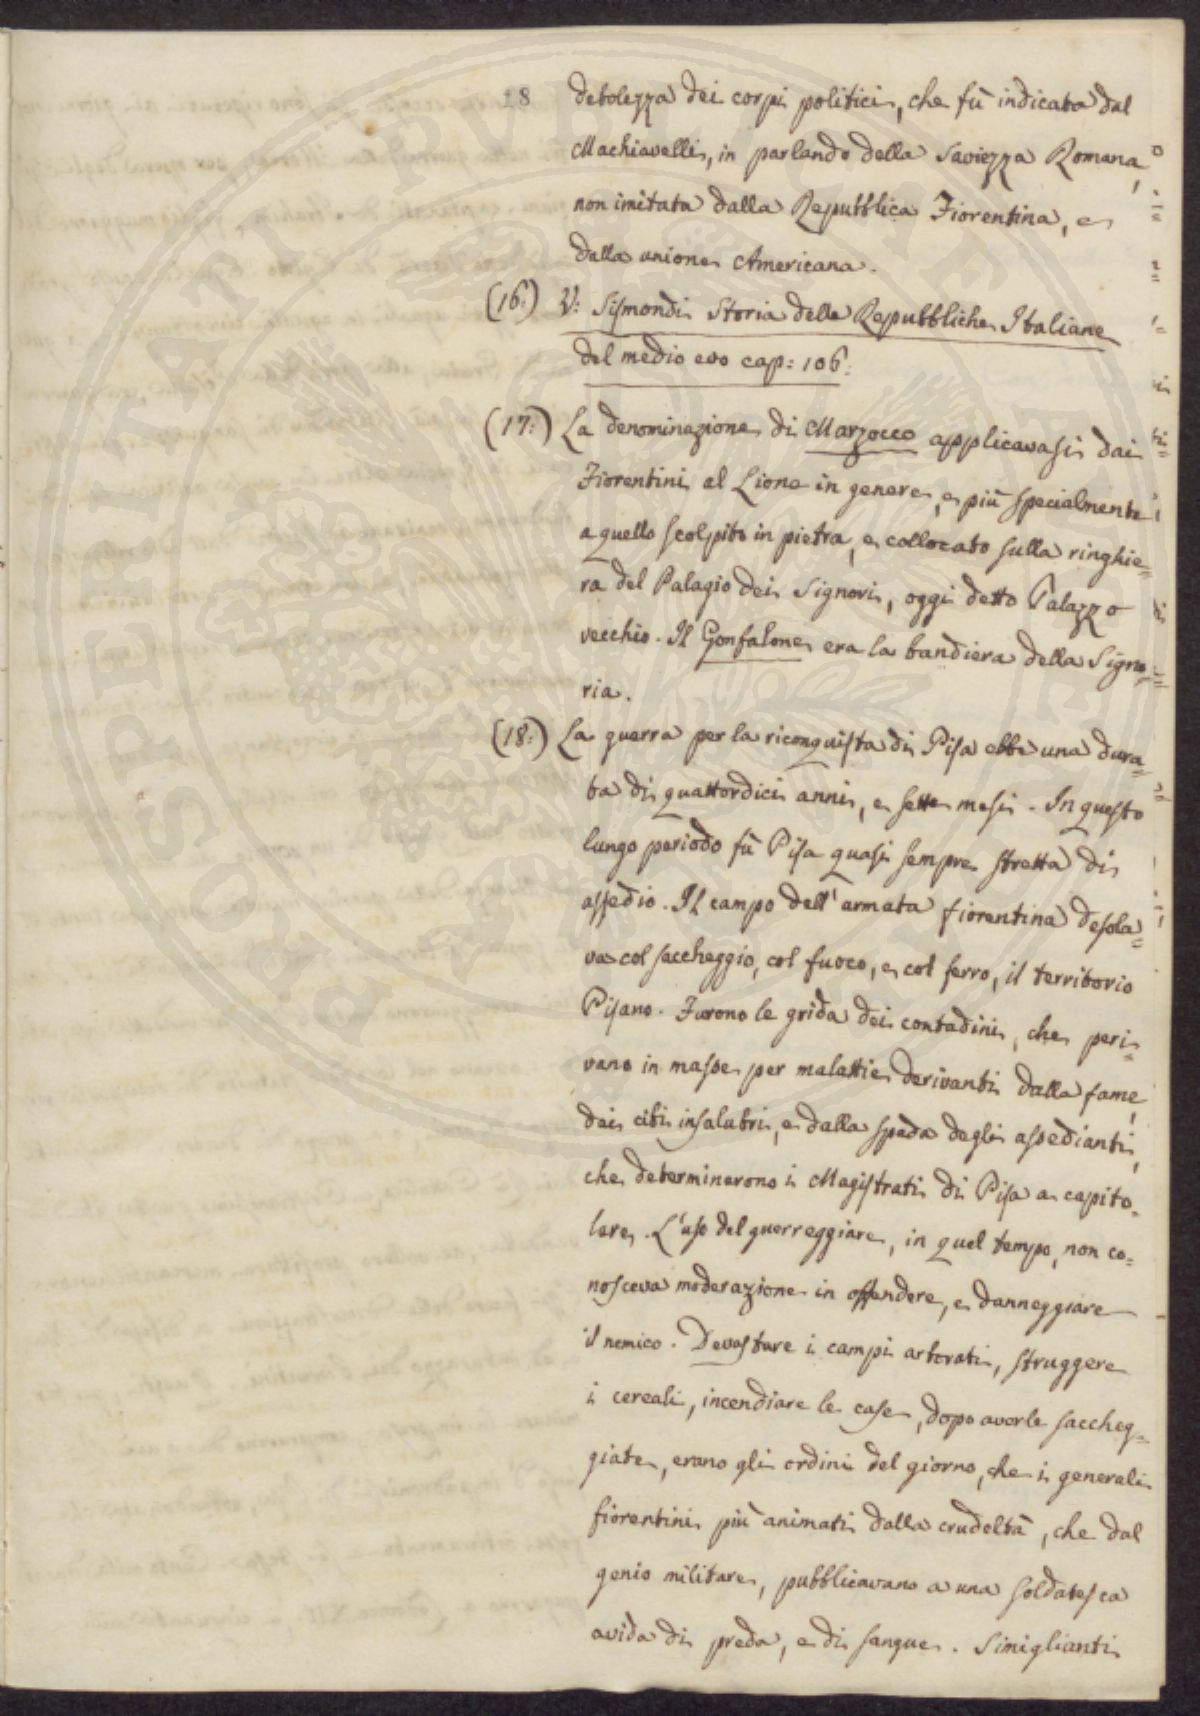 18
debolezza dei corpi politici, che fù indicata dal
Machiavelli, in parlando della Saviezza Romana,
non imitata dalla Repubblica Fiorentina, e
dalla unione Americana.
(16:) V: Sismondi Storia delle Repubbliche Italiane
del medio evo cap: 106:
(17:) La denominazione di Marzocco applicavasi dai
Fiorentini al Lione in genere, e più specialmente
a quello scolpito in pietra, e collocato sulla ringhie=
ra del Palagio dei Signori, oggi detto Palazzo
vecchio. Il Gonfalone era la bandiera della Signo=
ria.
(18:) La guerra per la riconquista di Pisa ebbe una dura=
ta di quattordici anni, e sette mesi. In questo
lungo periodo fù Pisa quasi sempre stretta di
assedio. Il campo dell'armata fiorentina desola=
va col saccheggio, col fuoco, e col ferro, il territorio
Pisano. Furono le grida dei contadini, che peri=
vano in masse per malattie derivanti dalla fame,
dai cibi insalubri, e dalla spada degli assedianti,
che determinarono i Magistrati di Pisa a capito=
lare. L'uso del guerreggiare, in quel tempo, non co=
nosceva moderazione in offendere, e danneggiare
il nemico. Devastare i campi arborati, struggere
i cereali, incendiare le case, dopo averle saccheg=
giate, erano gli ordini del giorno, che i generali
fiorentini più animati dalla crudeltà, che dal
genio militare, pubblicavano a una soldatesca
avida di preda, e di sangue. Simiglianti
PROSPERITATI PUBLICAE AUGENDAE